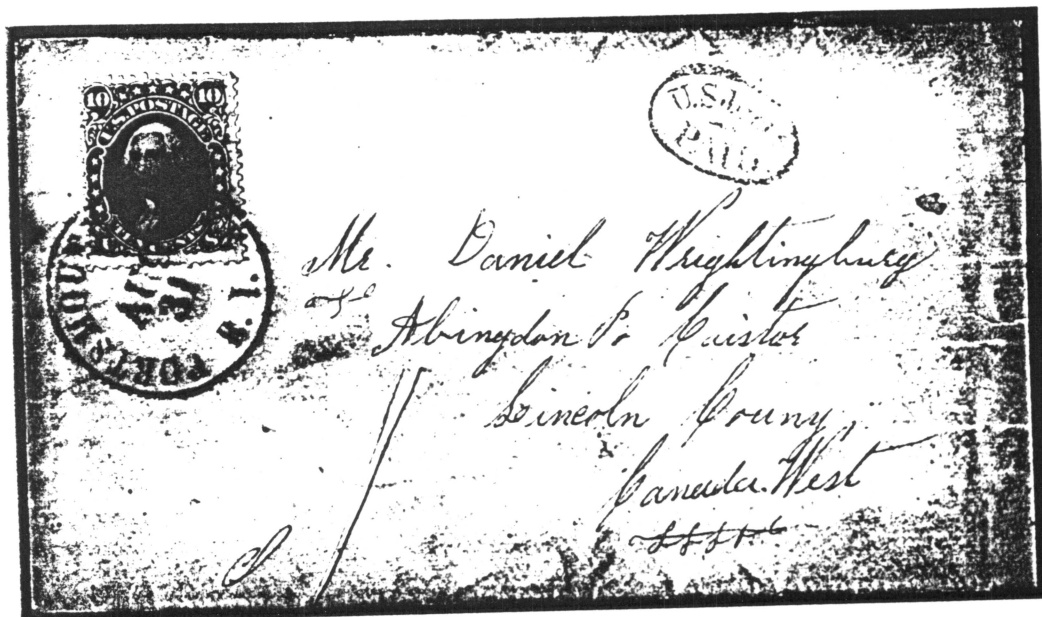 10 10
U.S. POSTAGE
PORTSMOUTH R.I.
U.S.
PAID
Mr. Daniel Wrightingburg
Abingdon Po Caistor
Lincoln Couny,
Canada. West